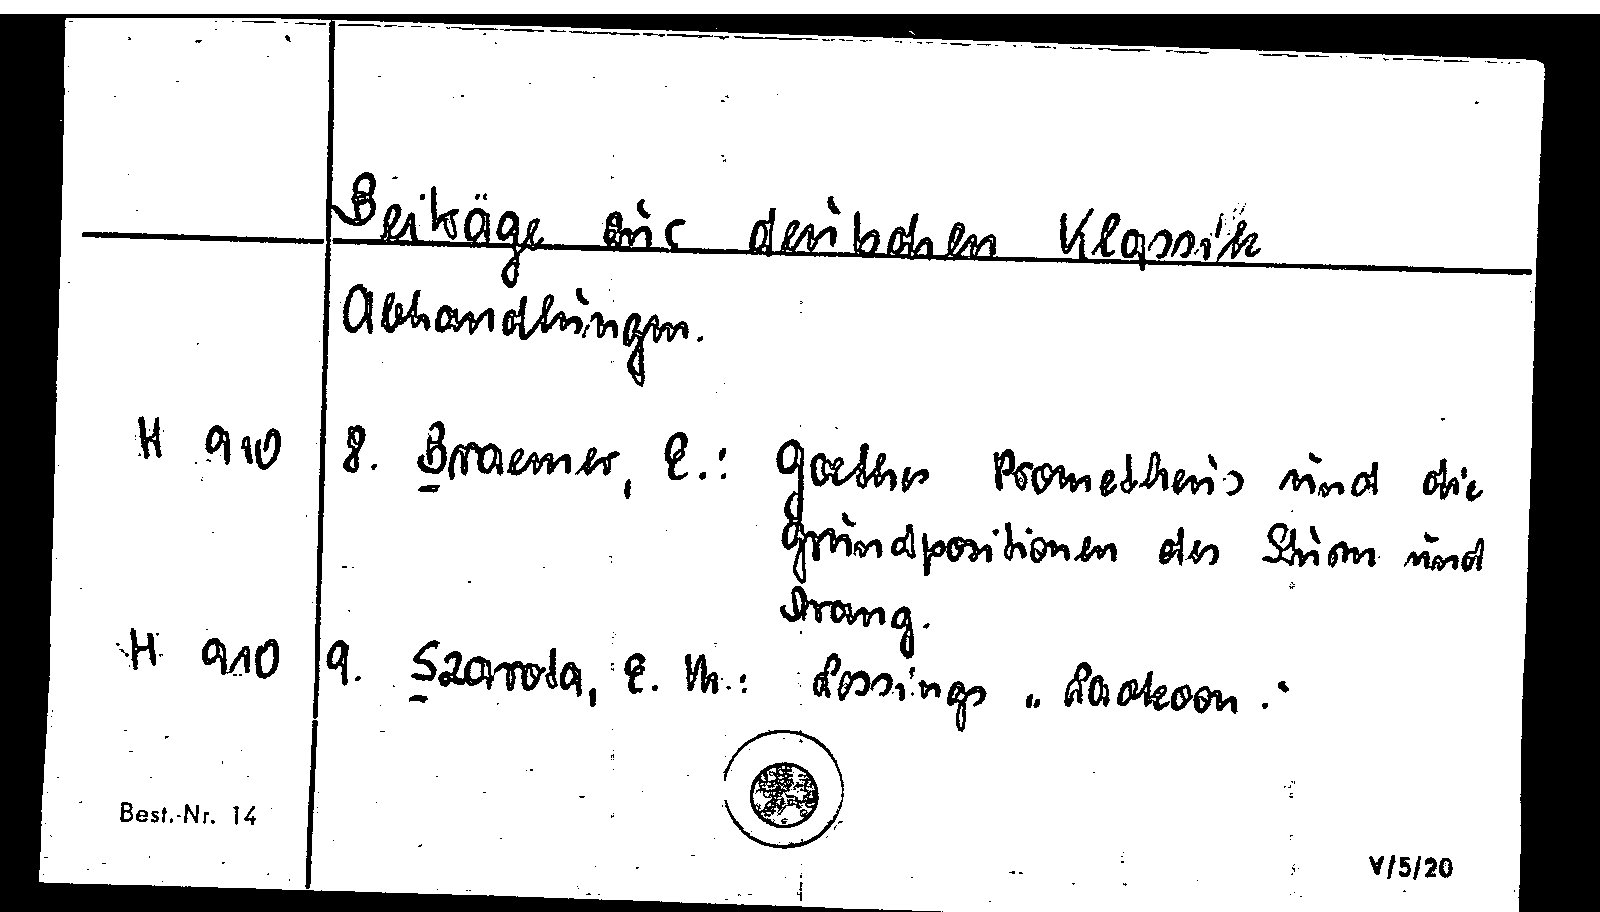 Beiträge zur deutschen Klassik
Abhandlungen.
H 910 8. Braemer, E.: Goethes Prometheus und die
Grundpositionen des Sturm und
Drang.
H 910 9. Szarota, E. M.: Lessings „Laokoon."
Best.-Nr. 14
V/5/20